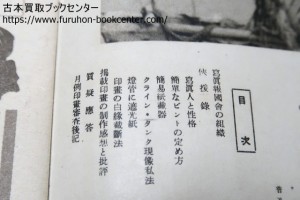 古本買取ブックセンター
https://www.furuhon-bookcenter.com/
目次
寫眞報國會の組織
侠援錄
寫眞人と性格
簡單なピントの定め方
簡易紙裁器
クライン・タンク現像私法
燈管に遮光紙
印畫の白緣裁斷法
掲載印畫の制作感想と批評
質疑應答
月例印畫審査後記